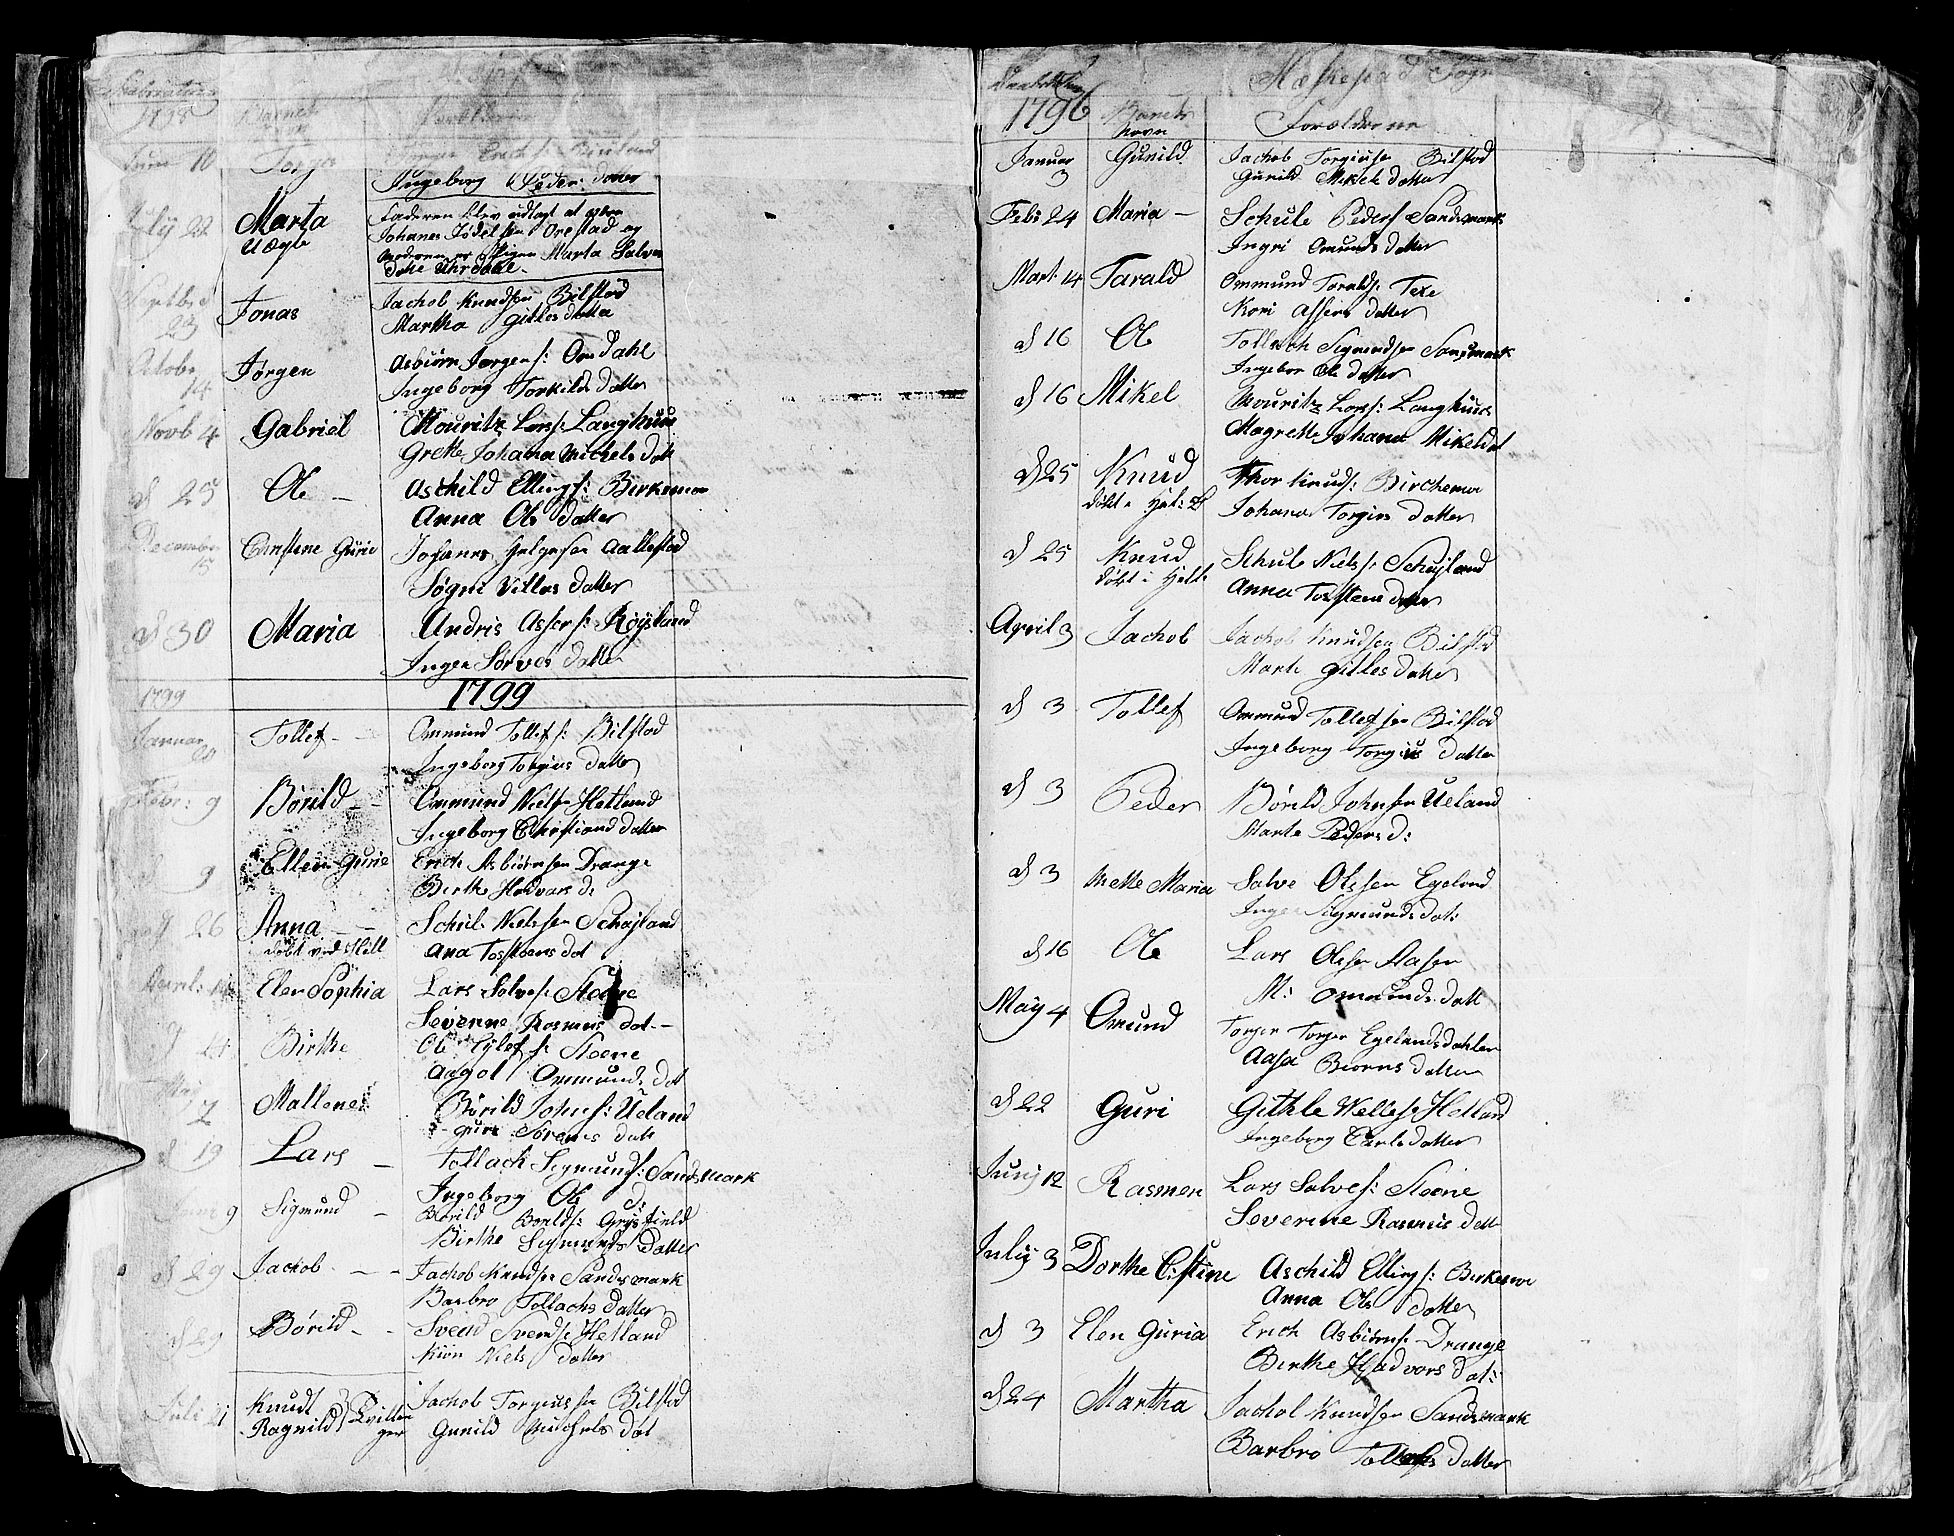 1798 Barnets
Juni 10 Torger
Ingeborg Peder: Datter
July 22 Marta
Uægte
Faderen blev udlagt at være
Johanes
Moderen er Pigen Marta Salves
Datter
Septbr d 23 Jonas
Jachob Knudsen Bilstod
Martha Gitles datter
Octobr 14 Jörgen
Asbiörn Jørgens: Omdahl
Ingeborg Torkilds Datter
Novb 4 Gabriel
Mouritz Lars: Langhuus
Grethe Johana Michels datt
d 25 Ole –
Aschild Ellings: Birkemoe
Anna Ols Datter
December 15 Christene Gurie
Johanes Helgesen Aallestad
Søgni Villas Datter
d 30 Maria
Andris Assers: Röysland
Inger Sørves datter
1799 1799
Januar 20 Tollef –
Ommund Tollefs: Bilstod
Ingeborg Torgius datter
Febr: 9 Börild –
Ommund Nielsen Hetland
Ingeborg Christians datter
d 9 Ellen Gurie
Erich Asbiörnsen Drange
Birthe Hadvars d:
d 26 Anna
döbt ved Hill
Schule Nielssen Schoyland
Ana Tosteens dat
April: 14 Elen Sophia
Lars Salves: Steene
Severine Rasmus dat –
d 21 Birthe
Ole Eylefs: Steene
Aagot Ommunds dat
May 7 Mallene
Börild Johns: Ueland
Guri Sörens dat
d 19 Lars –
Tollach Sigmunds: Sandsmark
Ingeborg Ole d:
Juni 9 Sigmund –
Börild Borilds:
Birthe Sigmunds Datter
d 29 Jachob – –
Jachob Knudsen Sandsmark
Barbro Tollachs Datter
d 29 Börild – –
Svend Svends: Hetland
Niels datter
Juli 21 Knudt
Ragnild } Tvillinger
Jachob Torgiussen Bilstod
Gunild Michels dat
Hæskestad Sogn
1796 Barnets Navn Forælderne
Januar 3 Gunild
Jachob Torgiusen Bilstod
Gunild Mikels datter
Feb: 24 Maria –
Schule Peders Sandsmark
Ingri Omunds datter
Mart: 14 Tarald
Ommund Toralds: Texe
Kari Assers datter
d 16 Ole
Tollach Sigmundsen Sandsmark
Ingebor Ole datter
d 16 Mikel
Mouritz Lars: Langhuus
Magrethe Johana Mikelsdat
d 25 Knud
Thor Knuds: Birchemoe
Johana Torgies datter
d 25 Knud
Schule Niels: Schøyland
Anna Tostens datter
April 3 Jachob
Jachob Knudsen Bilstod
Marte Gitles datter
d 3 Tollef
Ommund Tollefsen Bilstod
Ingeborg Torgius datter
d 3 Peder
Börild Johnsen Ueland
Marte Peders d:
d 3 Mette Maria
Salve Olssen Egeland
Inger Sigmunds dat:
d 16 Ole
Lars Olssen Aasen
M: Omunds datt
May 4 Omund
Torger Torger Egelandsdahlen
Aasa Biorns datter
d 22 Guri
Githle Hetland
Ingeborg Carls datter
Junj 12 Rasmen
Lars Salves: Steene
Severine Rasmus datt
July 3 Dorthe Cistine
Aschild Ellings: Birkemoe
Anna Ols datter
d 3 Elen Guria
Erich Asbiörns: Drange
Birthe Hadvors dat:
d 24 Martha
Jachob Knudsen Sandsmark
Barbro Tollachs datter